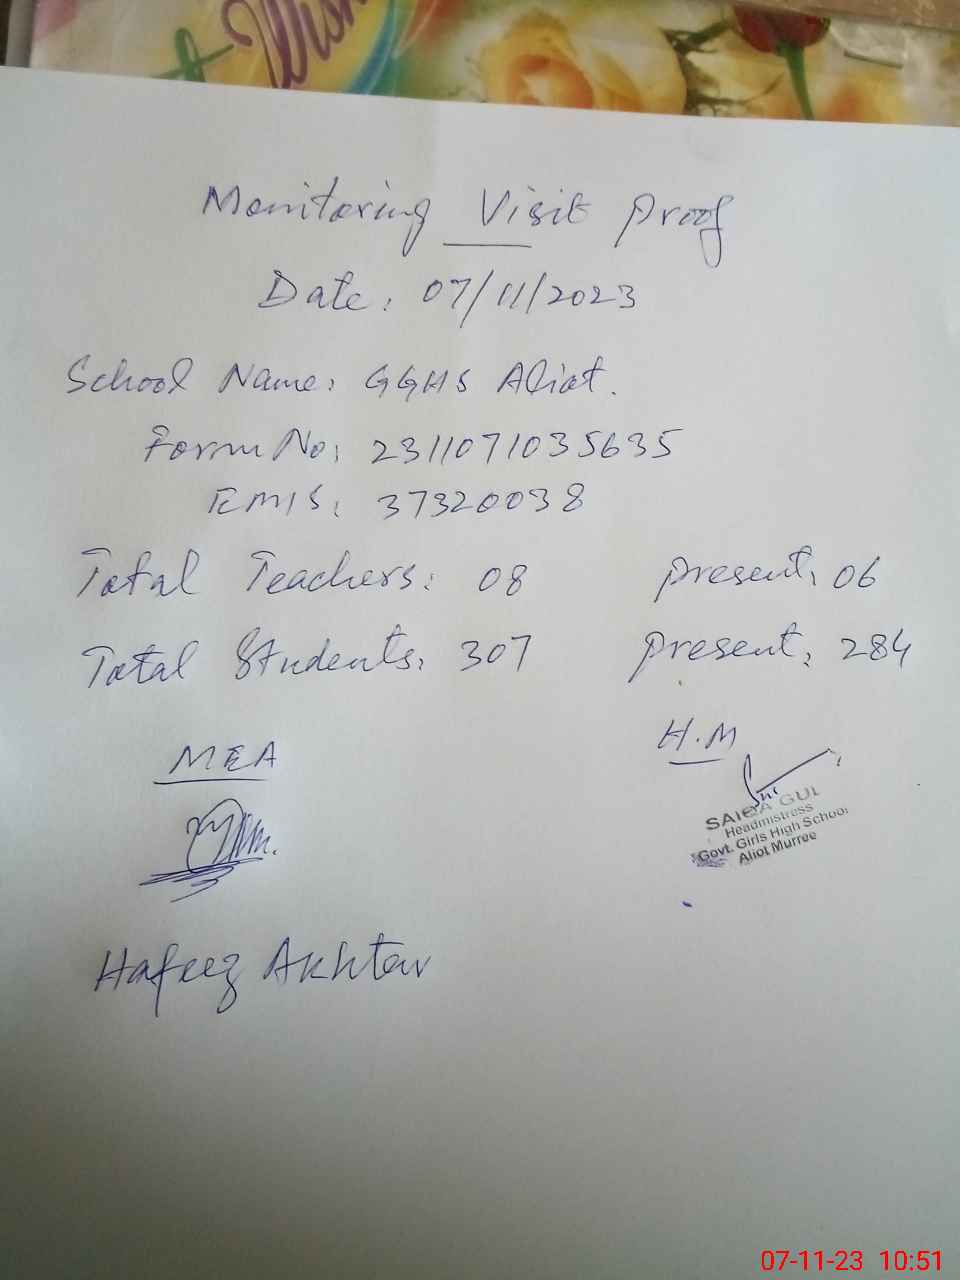 Wish
Monitoring Visit Proof
Date: 07/11/2023
School Name: GGHS Aliot.
Form No: 2311071035635
EMIS: 37320038
Total Teachers: 08 present: 06
Total Students: 307 present: 284
MEA H.M
SAIQA GUL
Headmistress
Govt. Girls High School
Aliot Murree
Hafeez Akhtar
07-11-23 10:51